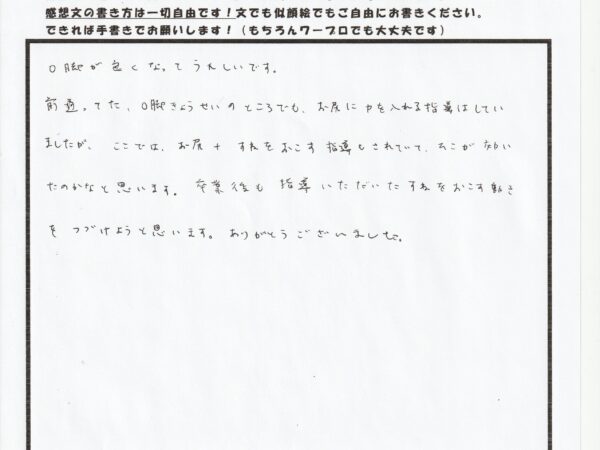 感想文の書き方は一切自由です！文でも似顔絵でもご自由にお書きください。
できれば手書きでお願いします！（もちろんワープロでも大丈夫です）
O脚が良くなってうれしいです。
前通ってた、O脚きょうせいのところでも、お尻に力を入れる指導はしてい
ましたが、ここでは、お尻＋すねをおこす指導もされていて、そこが効い
たのかなと思います。卒業後も指導いただいたすねをおこす動き
をつづけようと思います。ありがとうございました。